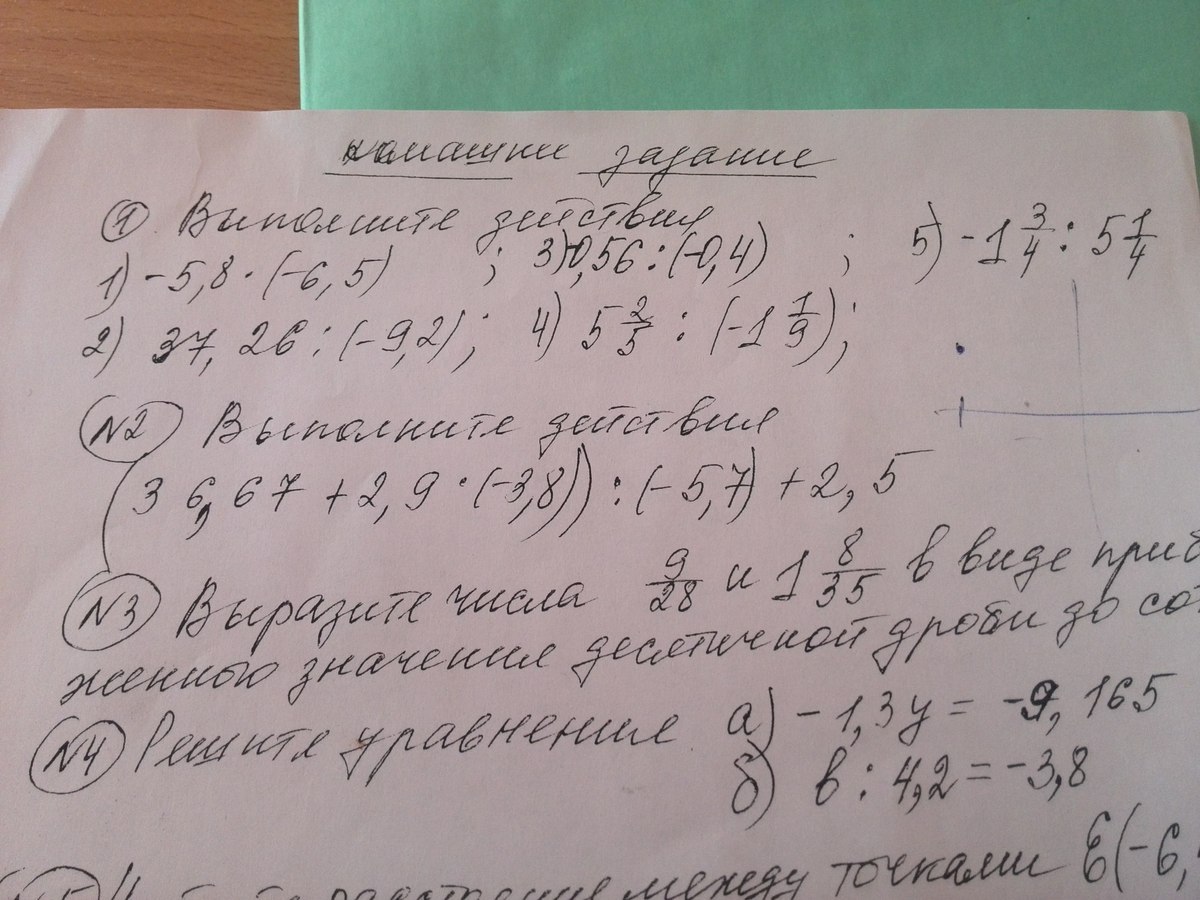 задание
① Выполните действия
1) -5,8 · (-6,5) ; 3) 0,56 : (-0,4) ; 5) -1 3/4 : 5 1/4
2) 37,26 : (-9,2) ; 4) 5 2/5 : (-1 1/9) ;
N2 Выполните действия
(36,67 + 2,9 · (-3,8)) : (-5,7) + 2,5
N3 Выразите числа 9/28 и 1 8/35 в виде приб
женного значения десятичной дроби до сот
N4 Решите уравнения а) -1,3y = -9,165
б) в : 4,2 = -3,8
между точками E(-6,